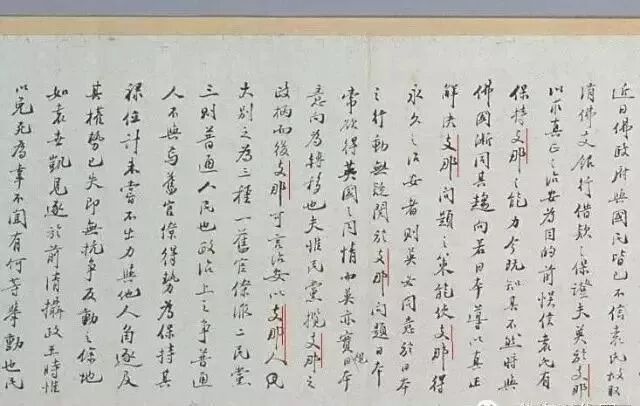 近日佛政府與國民皆已不信袁氏故取
消佛支銀行借款之保證夫英於支那
以求真正之治安為目的前悞信袁氏有
保持支那之能力今既知其不然時與
佛國漸同其趨向若日本導以真正
解決支那問題之策能使支那得
永久之治安者則英必同意於日本
之行動無疑關於支那問題日本
常欲得英國之同情而英亦實視日本
意向為轉移也夫惟民黨攬支那之
政柄而後支那可言治安以支那人民
大別之為三種一舊官僚派二民黨
三則普通人民也政治上之爭普通
人不與焉舊官僚得勢為保持其
祿位計未嘗不出力與他人角逐及
其權勢已失即無抗爭反動之餘地
如袁世凱見逐於前清攝政王時惟
以免死為幸不聞有何等舉動也民